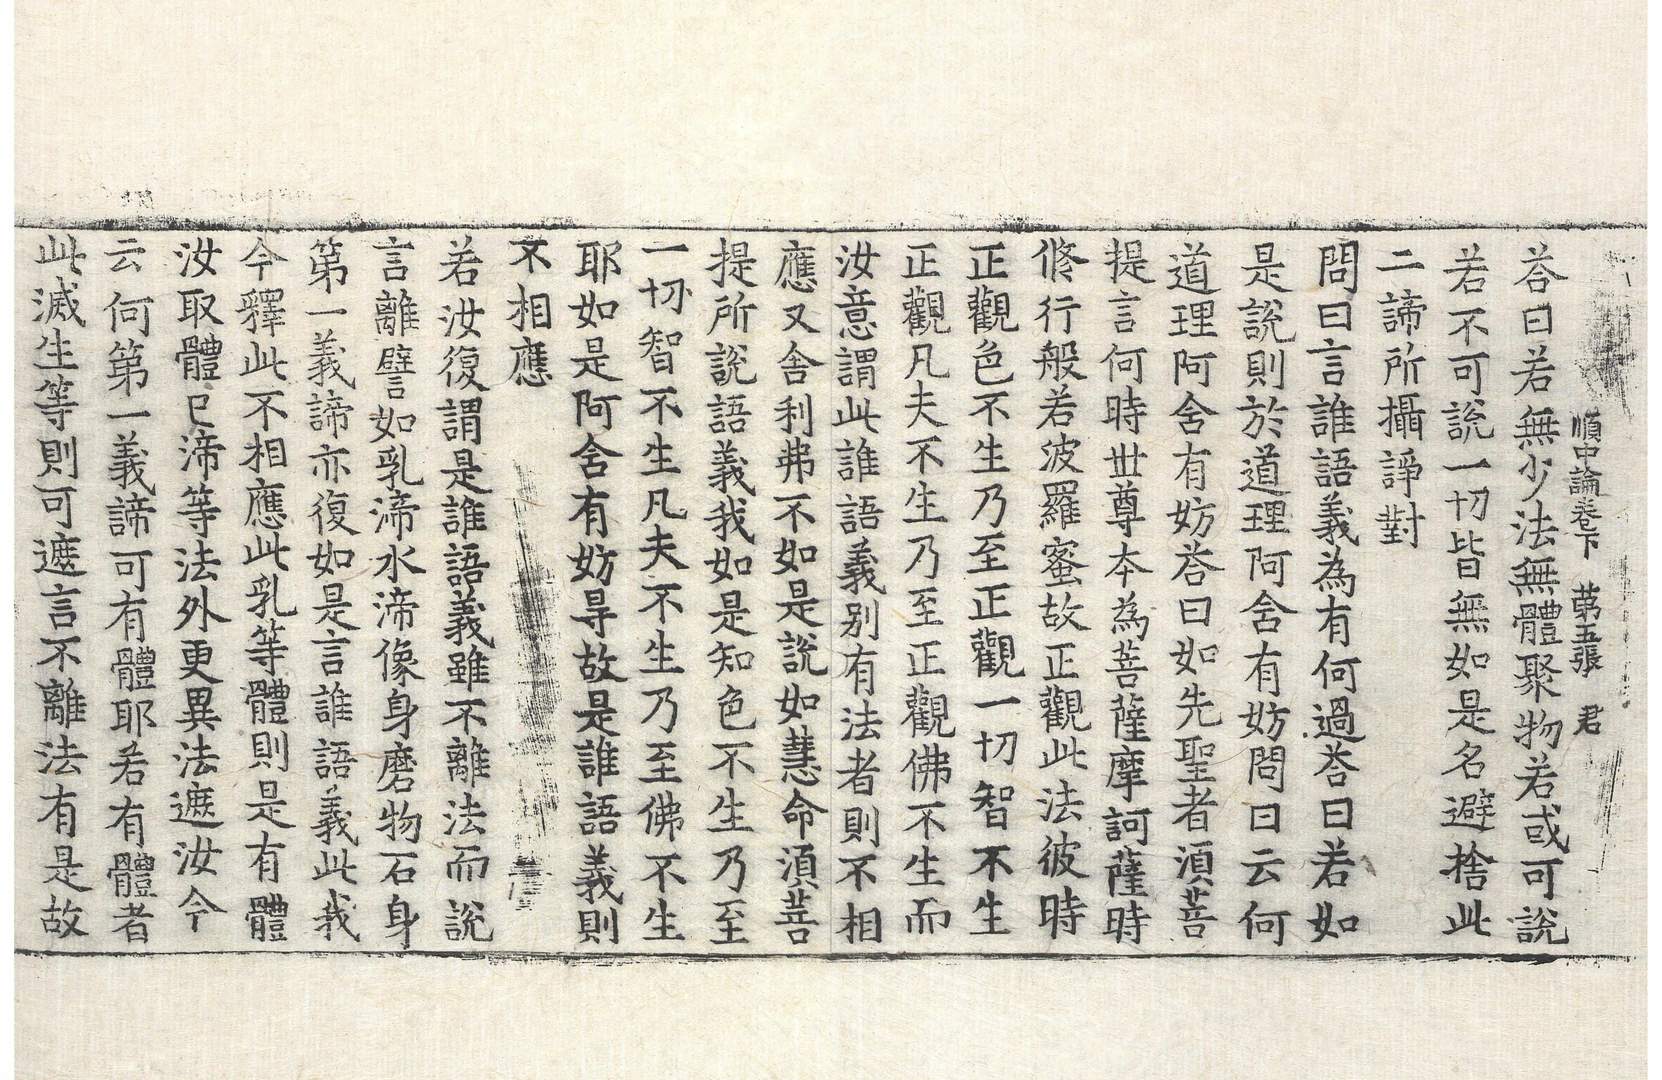 順中論卷下 第五張 君
荅曰若無少法無體聚物若或可說
若不可說一切皆無如是名避捨此
二諦所攝諍對
問曰言誰語義為有何過荅曰若如
是說則於道理阿舍有妨問曰云何
道理阿舍有妨荅曰如先聖者湏菩
提言何時世尊本為菩薩摩訶薩時
修行般若波羅蜜故正觀此法彼時
正觀色不生乃至正觀一切智不生
正觀凡夫不生乃至正觀佛不生而
汝意謂此誰語義別有法者則不相
應又舍利弗不如是說如慧命湏菩
提所說語義我如是知色不生乃至
一切智不生凡夫不生乃至佛不生
耶如是阿舍有妨㝵故是誰語義則
不相應
若汝復謂是誰語義雖不離法而說
言離譬如乳渧水渧像身磨物石身
第一義諦亦復如是言誰語義此我
今釋此不相應此乳等體則是有體
汝取體已渧等法外更異法遮汝今
云何第一義諦可有體耶若有體者
此滅生等則可遮言不離法有是故